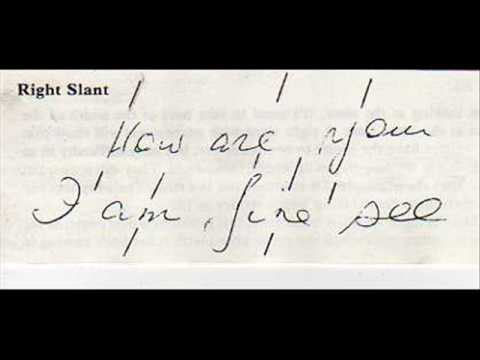 Right Slant
How are you
I am fine see